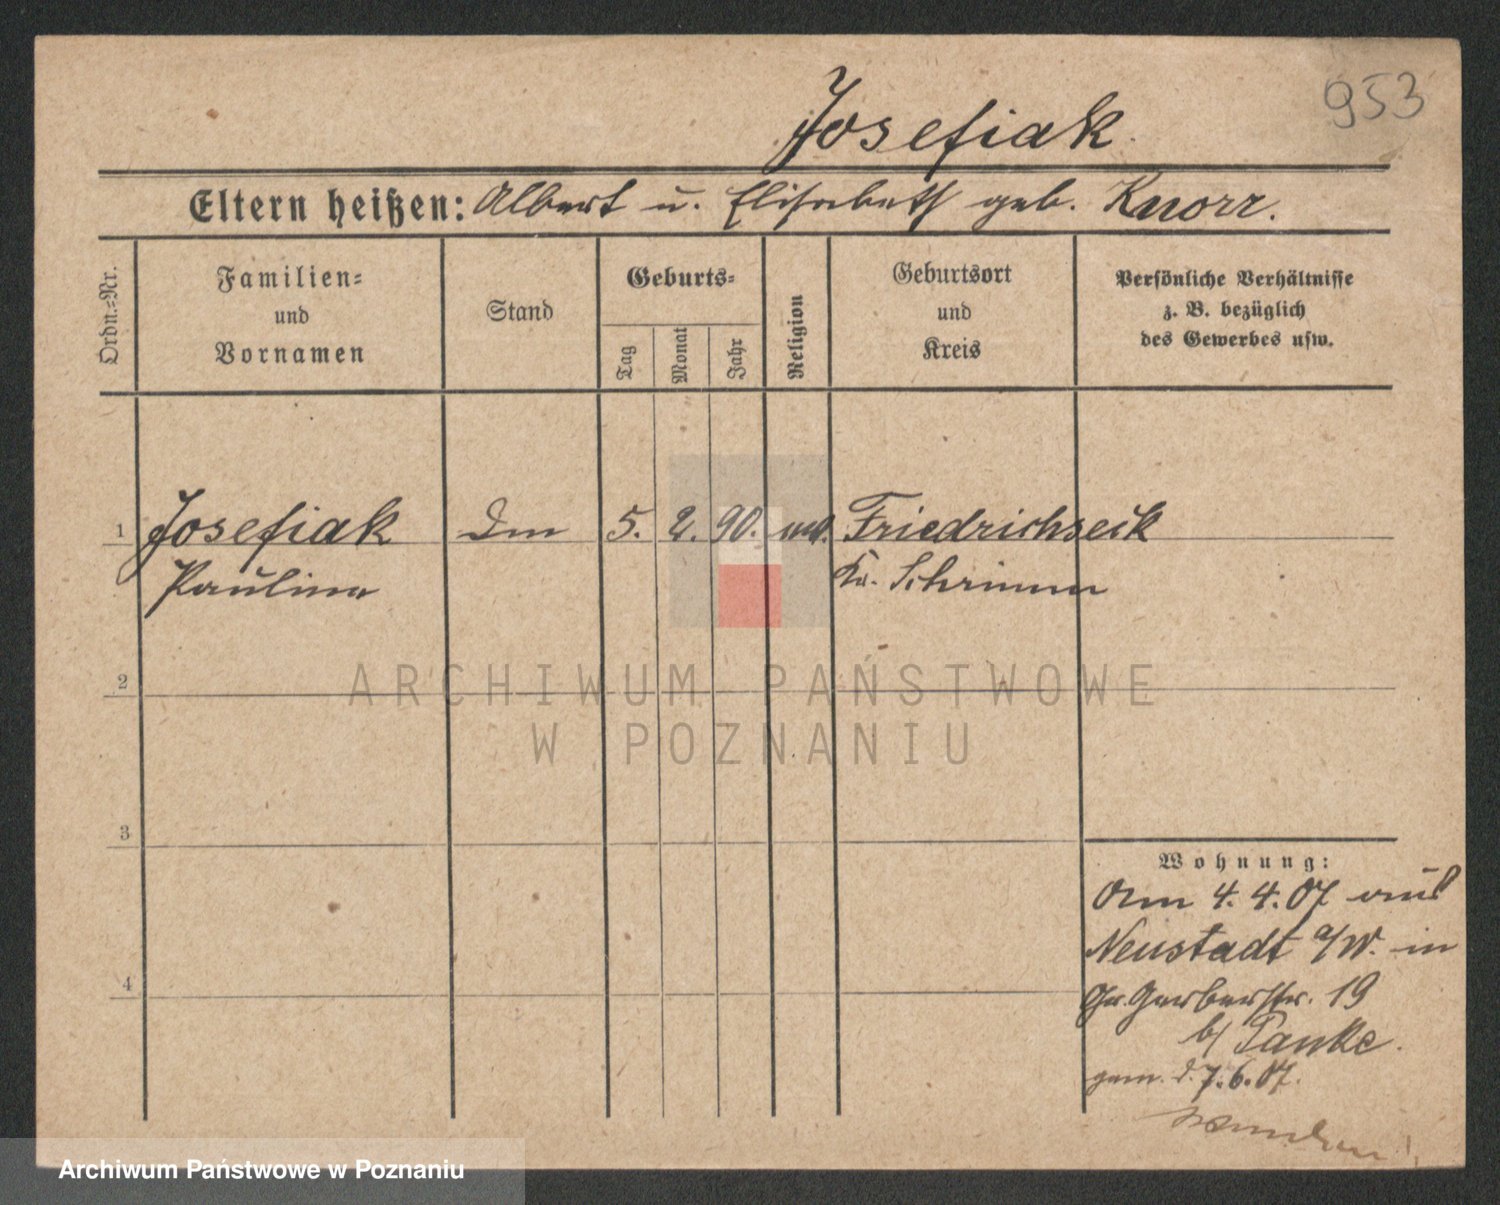 953
Josefiak.
Eltern heißen: Albert u. Elisabeth geb. Knorr.
Ordn.=Nr.
Familien=
und
Vornamen
Stand
Geburts=
Tag
Monat
Jahr
Religion
Geburtsort
und
Kreis
Persönliche Verhältnisse
z. B. bezüglich
des Gewerbes usw.
1
Josefiak
Paulina
5. 2. 90.
Friedrichseik
Kr. Schrimm
2
3
4
ARCHIWUM PAŃSTWOWE
W POZNANIU
Wohnung:
Am 4.4.07 aus
Neustadt a/W. in
Gr. Gerberstr. 19
b/ Panke.
gem. d. 7.6.07.
Archiwum Państwowe w Poznaniu